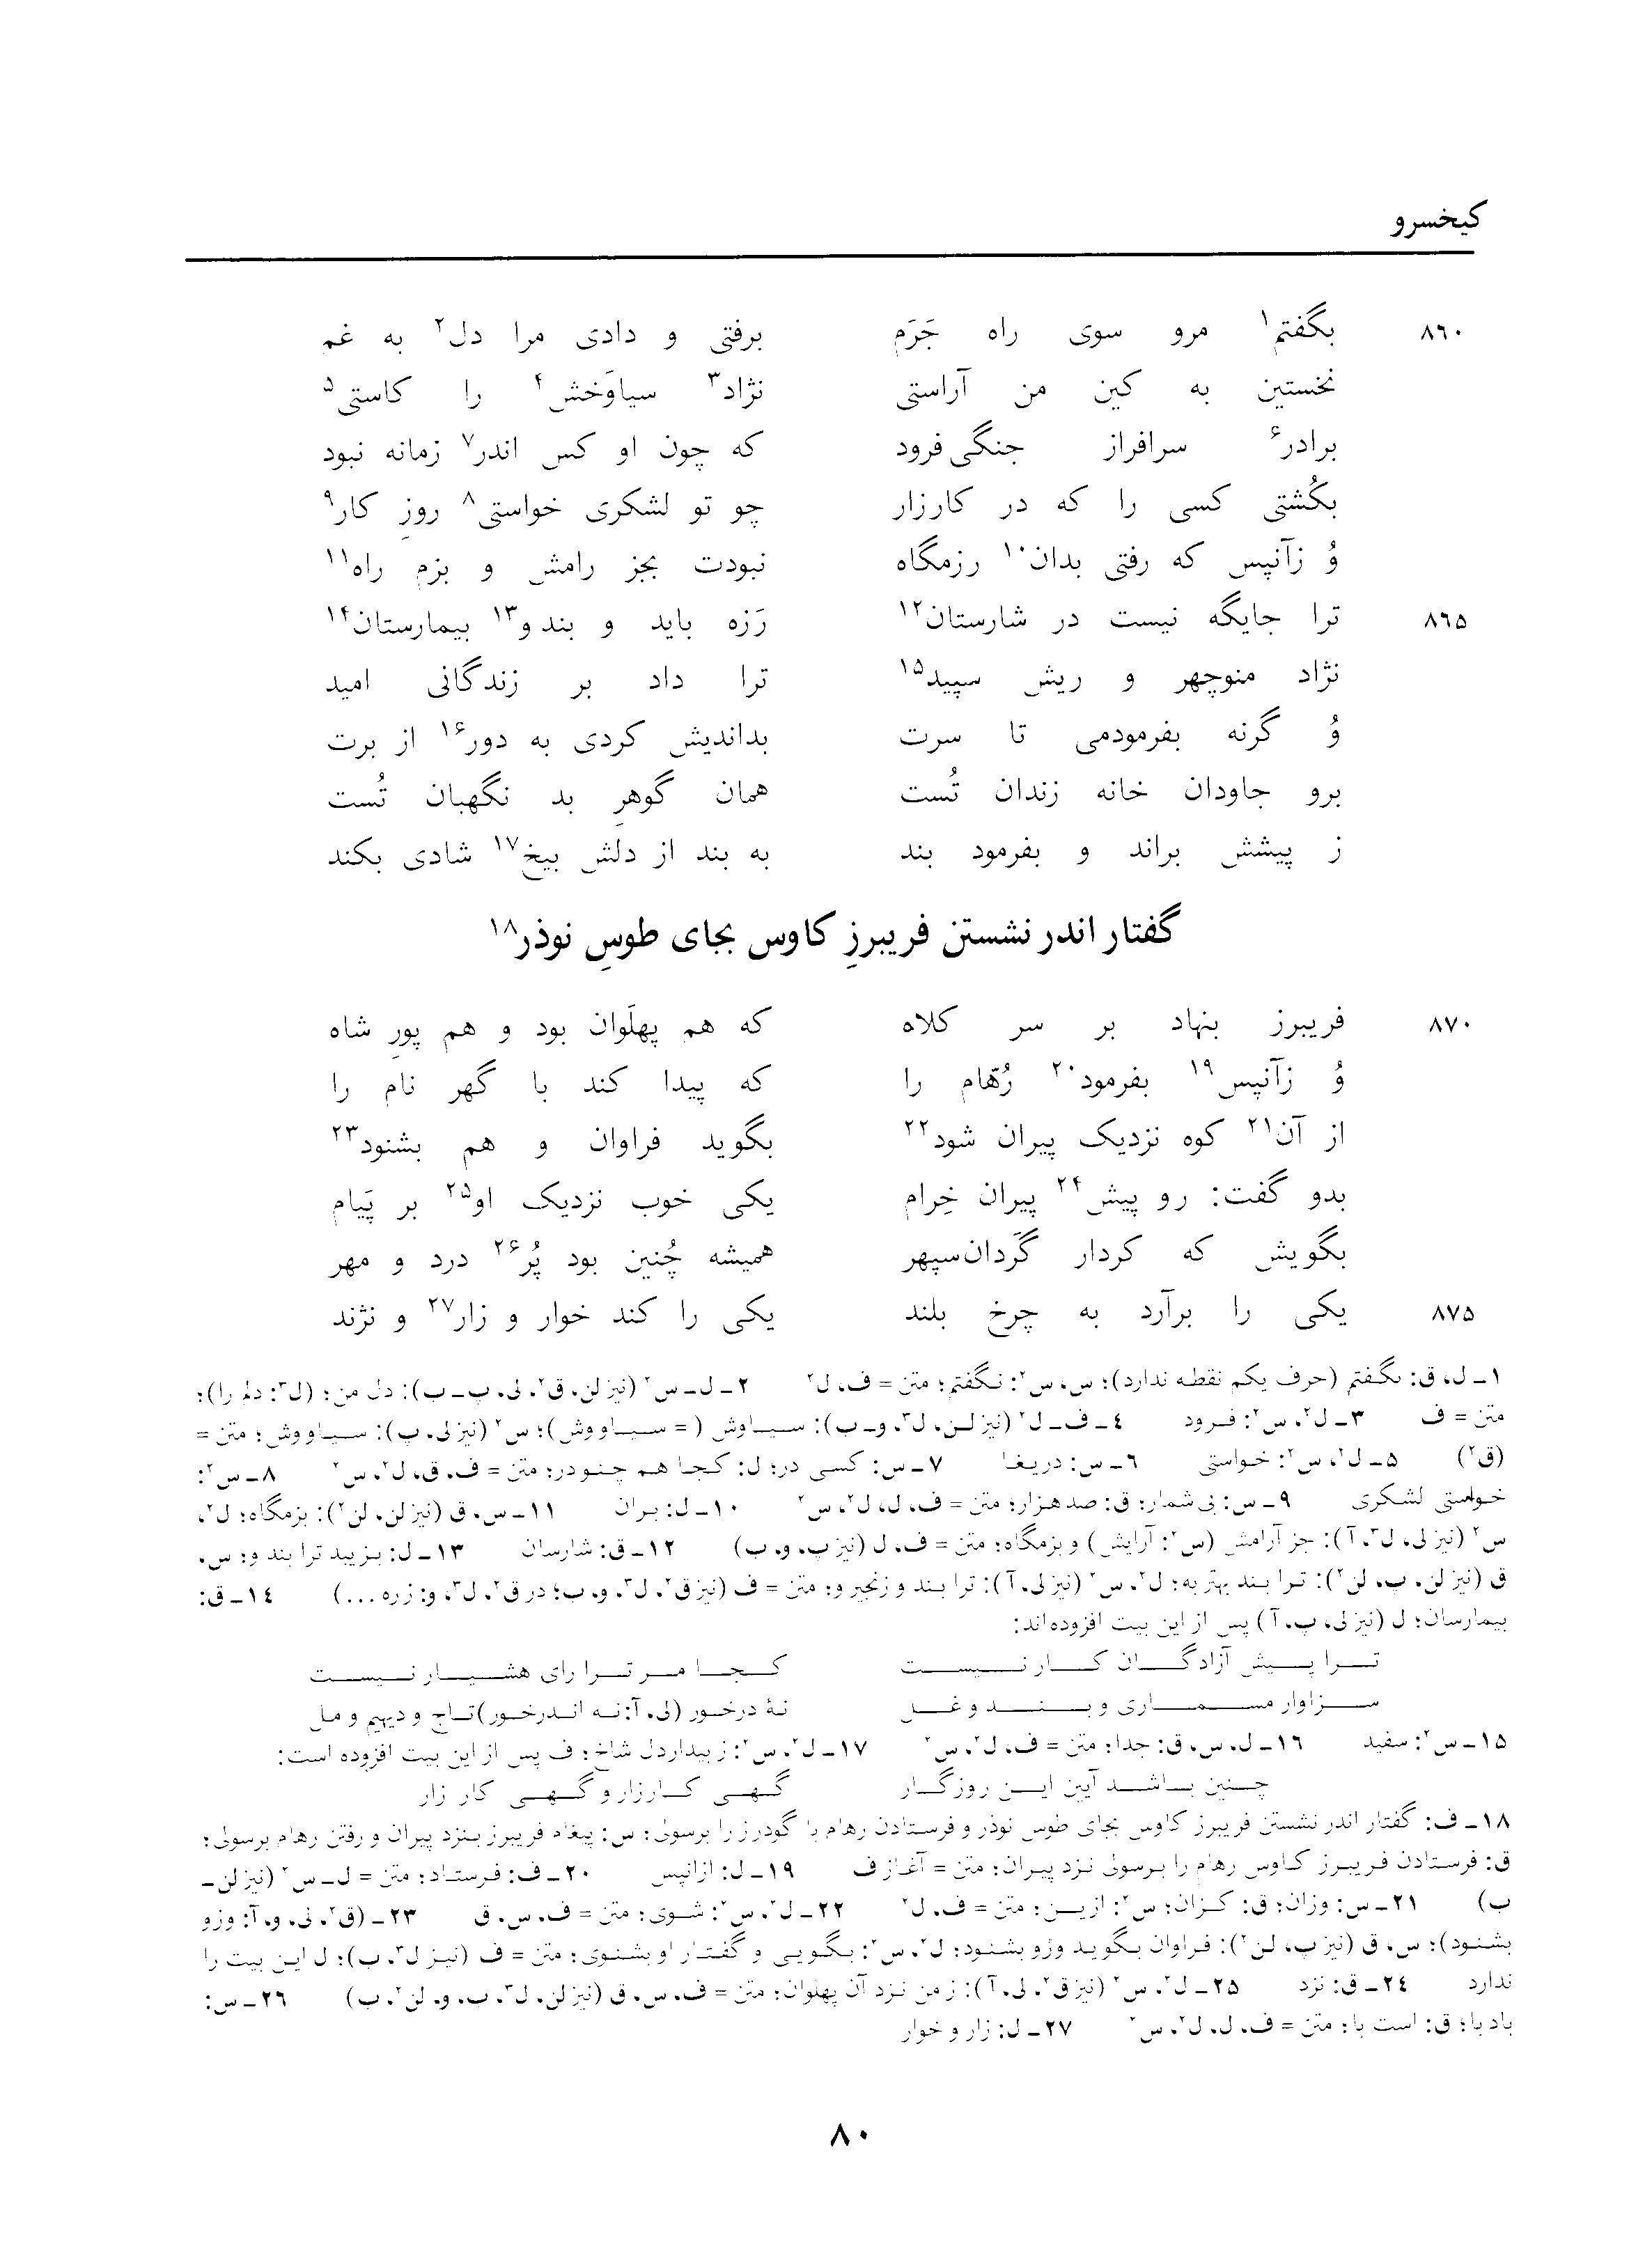 کیخسرو
۸۶۰ بگفتم۱ مرو سوی راه جَرَم برفتی و دادی مرا دل۲ به غم
نخستین به کین من آراستی نژاد۳ سیاوَخش۴ را کاستی۵
برادر۶ سرافراز جنگی فرود که چون او کس اندر۷ زمانه نبود
بکُشتی کسی را که در کارزار چو تو لشکری خواستی۸ روزِ کار۹
وُ زآنپس که رفتی بدان۱۰ رزمگاه نبودت بجز رامش و بزم راه۱۱
۸۶۵ ترا جایگه نیست در شارستان۱۲ رَزه باید و بند و۱۳ بیمارستان۱۴
نژاد منوچهر و ریش سپید۱۵ ترا داد بر زندگانی امید
وُ گرنه بفرمودمی تا سرت بداندیش کردی به دور۱۶ از برت
برو جاودان خانه زندان تُست همان گوهرِ بد نگهبان تُست
ز پیشش براند و بفرمود بند به بند از دلش بیخ۱۷ شادی بکند
گفتار اندر نشستن فریبرزِ کاوس بجای طوسِ نوذر۱۸
۸۷۰ فریبرز بنهاد بر سر کلاه که هم پهلَوان بود و هم پورِ شاه
وُ زآنپس۱۹ بفرمود۲۰ رُهّام را که پیدا کند با گهر نام را
از آن۲۱ کوه نزدیک پیران شود۲۲ بگوید فراوان و هم بشنود۲۳
بدو گفت: رو پیش۲۴ پیران خِرام یکی خوب نزدیک او۲۵ بر پَیام
بگویش که کردار گَردان‌سپهر همیشه چُنین بود پُر۲۶ درد و مهر
۸۷۵ یکی را برآرد به چرخ بلند یکی را کند خوار و زار۲۷ و نژند
۱ـ ل، ق: بگفتم (حرف یکم نقطه ندارد)؛ س، س۲: نگفتم؛ متن = ف، ل۲ ۲ـ ل-س۲ (نیز لن، ق۲، لی، پ-ب): دل من؛ (ل۳: دلم را)؛
متن = ف ۳ـ ل۲، س۲: فرود ۴ـ ف-ل۲ (نیز لن، ل۳، و-ب): سیاوش (= سیاووش)؛ س۲ (نیز لی، پ): سیاووش؛ متن =
(ق۲) ۵ـ ل۲، س۲: خواستی ۶ـ س: دریغا ۷ـ س: کسی در؛ ل: کجا هم چنو در؛ متن = ف، ق، ل۲، س۲ ۸ـ س۲:
خواستی لشکری ۹ـ س: بی‌شمار؛ ق: صدهزار؛ متن = ف، ل، ل۲، س۲ ۱۰ـ ل: بران ۱۱ـ س، ق (نیز لن، لن۲): بزمگاه؛ ل۲،
س۲ (نیز لی، ل۳، آ): جز آرامش (س۲: آرایش) و بزمگاه؛ متن = ف، ل (نیز پ، و، ب) ۱۲ـ ق: شارسان ۱۳ـ ل: بزیبد ترا بند و؛ س،
ق (نیز لن، پ، لن۲): ترا بند بهتر به؛ ل۲، س۲ (نیز لی، آ): ترا بند و زنجیر و؛ متن = ف (نیز ق۲، ل۳، و، ب؛ در ق۲، ل۳، و: زره ...) ۱۴ـ ق:
بیمارسان؛ ل (نیز لی، پ، آ) پس از این بیت افزوده‌اند:
ترا پیش آزادگان کار نیست کجا مر ترا رای هشیار نیست
سزاوار مسماری و بند و غل نهٔ درخور (لی، آ: نه اندرخور) تاج و دیهیم و مل
۱۵ـ س۲: سفید ۱۶ـ ل، س، ق: جدا؛ متن = ف، ل۲، س۲ ۱۷ـ ل۲، س۲: زبیداردل شاخ؛ ف پس از این بیت افزوده است:
چنین باشد آیین این روزگار گهی کارزار و گهی کار زار
۱۸ـ ف: گفتار اندر نشستن فریبرز کاوس بجای طوس نوذر و فرستادن رهام با گودرز را برسولی؛ س: پیغام فریبرز بنزد پیران و رفتن رهام برسولی؛
ق: فرستادن فریبرز کاوس رهام را برسولی نزد پیران؛ متن = آغاز ف ۱۹ـ ل: ازانپس ۲۰ـ ف: فرستاد؛ متن = ل-س۲ (نیز لن-
ب) ۲۱ـ س: وزان؛ ق: کزان؛ س۲: ازین؛ متن = ف، ل۲ ۲۲ـ ل۲، س۲: شوی؛ متن = ف، س، ق ۲۳ـ (ق۲، لی، و، آ: وزو
بشنود)؛ س، ق (نیز پ، لن۲): فراوان بگوید وزو بشنود؛ ل۲، س۲: بگویی و گفتار او بشنوی؛ متن = ف (نیز ل۳، ب)؛ ل این بیت را
ندارد ۲۴ـ ق: نزد ۲۵ـ ل۲، س۲ (نیز ق۲، لی، آ): ز من نزد آن پهلوان؛ متن = ف، س، ق (نیز لن، ل۳، پ، و، لن۲، ب) ۲۶ـ س:
باد با؛ ق: است با؛ متن = ف، ل، ل۲، س۲ ۲۷ـ ل: زار و خوار
۸۰